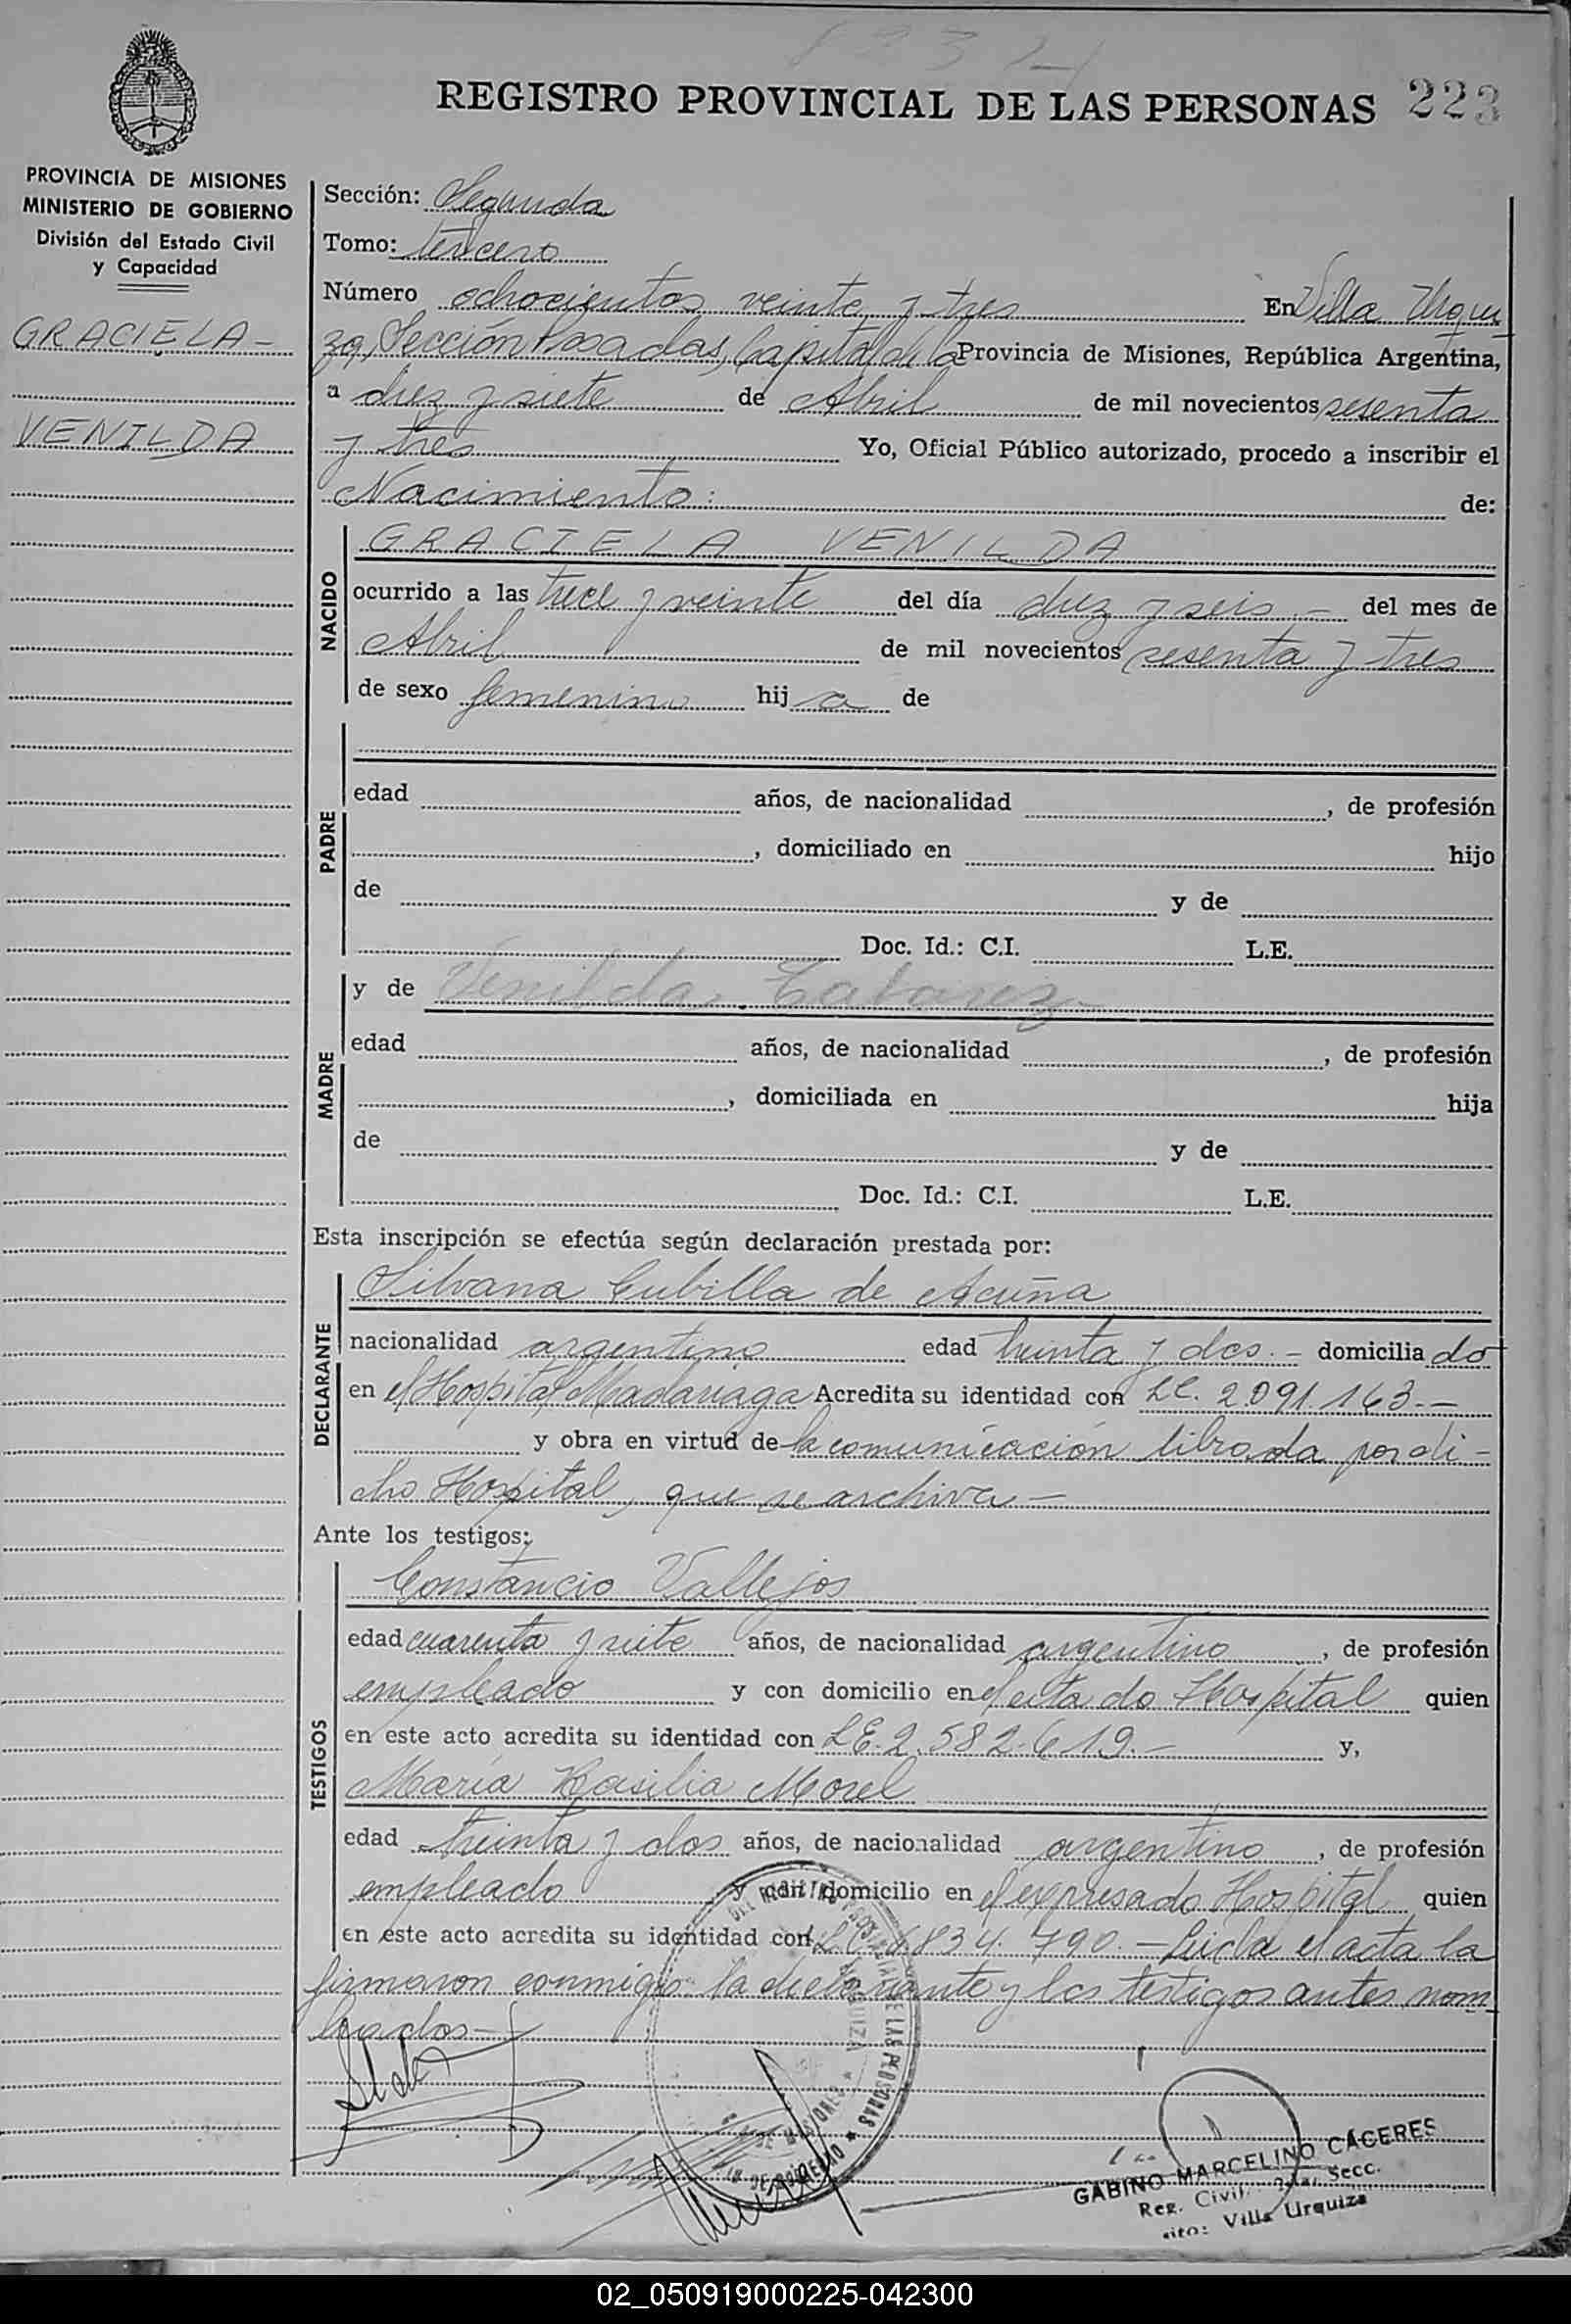 REGISTRO PROVINCIAL DE LAS PERSONAS 223
PROVINCIA DE MISIONES
MINISTERIO DE GOBIERNO
División del Estado Civil
y Capacidad
GRACIELA -
VENILDA
Sección: Segunda
Tomo: tercero
Número ochocientos veinte y tres En Villa Urqui
za, Sección Posadas, Capital de la Provincia de Misiones, República Argentina,
a diez y siete de Abril de mil novecientos sesenta
y tres Yo, Oficial Público autorizado, procedo a inscribir el
Nacimiento: de:
NACIDO
GRACIELA VENILDA
ocurrido a las trece y veinte del día diez y seis.- del mes de
Abril de mil novecientos sesenta y tres
de sexo femenino hij a de
PADRE
edad años, de nacionalidad , de profesión
, domiciliado en hijo
de y de
Doc. Id.: C.I. L.E.
MADRE
y de Venilda Tabarez
edad años, de nacionalidad , de profesión
, domiciliada en hija
de y de
Doc. Id.: C.I. L.E.
Esta inscripción se efectúa según declaración prestada por:
DECLARANTE
Silvana Cubilla de Acuña
nacionalidad argentina edad treinta y dos.- domicilia do
en el Hospital Madariaga Acredita su identidad con LC. 2.091.163.-
y obra en virtud de la comunicación librada por di-
cho Hospital, que se archiva-
Ante los testigos:
TESTIGOS
Constancio Vallejos
edad cuarenta y siete años, de nacionalidad argentino, de profesión
empleado y con domicilio en el cita do Hospital quien
en este acto acredita su identidad con LE. 2.582.619.- y,
María Basilia Morel
edad treinta y dos años, de nacionalidad argentino, de profesión
empleado y con domicilio en el expresado Hospital quien
en este acto acredita su identidad con L.C. 6.834.790.- Leída el acta la
firmaron conmigo la declarante y los testigos antes nom
brados-
GABINO MARCELINO CÁCERES
Reg. Civil Secc.
Villa Urquiza
02_050919000225-042300